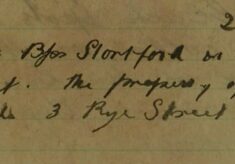 2
Bps Stortford in
t. The property of
3 Rye Street